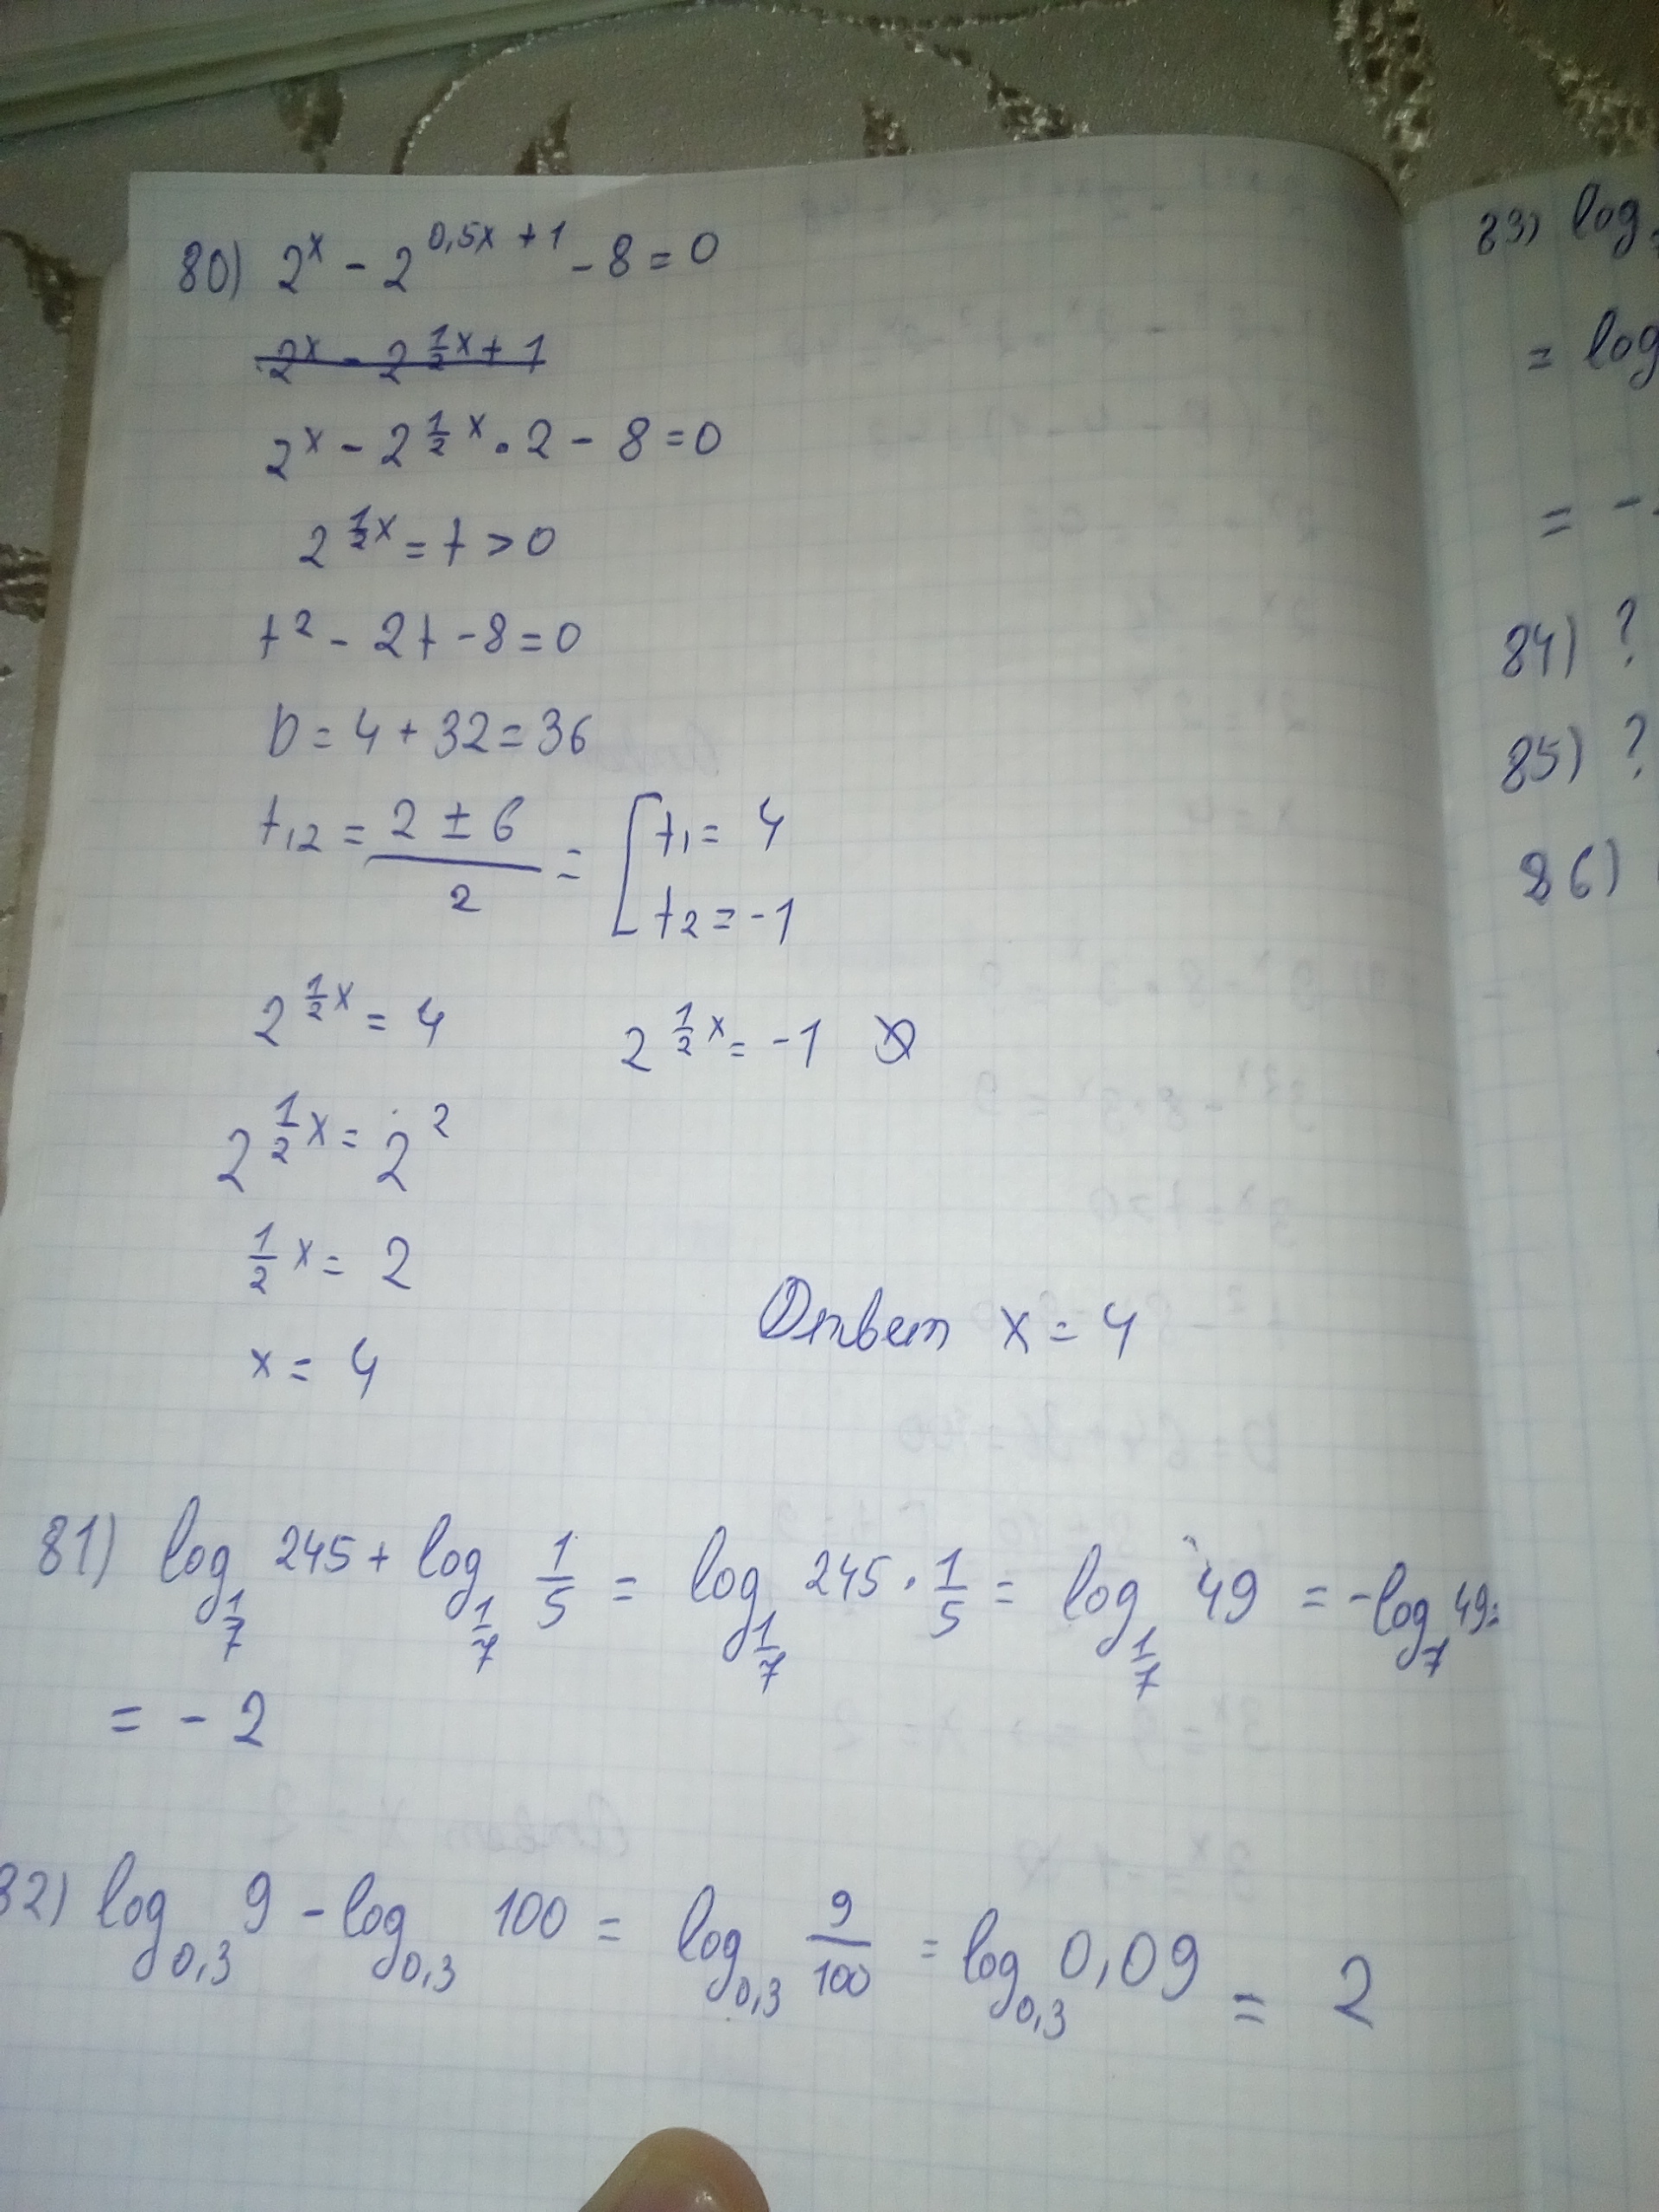 80) 2^x - 2^{0,5x + 1} - 8 = 0
2^x - 2^{\frac{1}{2}x + 1}
2^x - 2^{\frac{1}{2}x} · 2 - 8 = 0
2^{\frac{1}{2}x} = t > 0
t^2 - 2t - 8 = 0
D = 4 + 32 = 36
t_{12} = \frac{2 ± 6}{2} = [ t_1 = 4
t_2 = -1
2^{\frac{1}{2}x} = 4    2^{\frac{1}{2}x} = -1 ∅
2^{\frac{1}{2}x} = 2^2
\frac{1}{2}x = 2
x = 4
Ответ x = 4
81) log_{\frac{1}{7}} 245 + log_{\frac{1}{7}} \frac{1}{5} = log_{\frac{1}{7}} 245 · \frac{1}{5} = log_{\frac{1}{7}} 49 = -log_7 49 =
= - 2
82) log_{0,3} 9 - log_{0,3} 100 = log_{0,3} \frac{9}{100} = log_{0,3} 0,09 = 2
83) log
= log
= -
84) ?
85) ?
86)